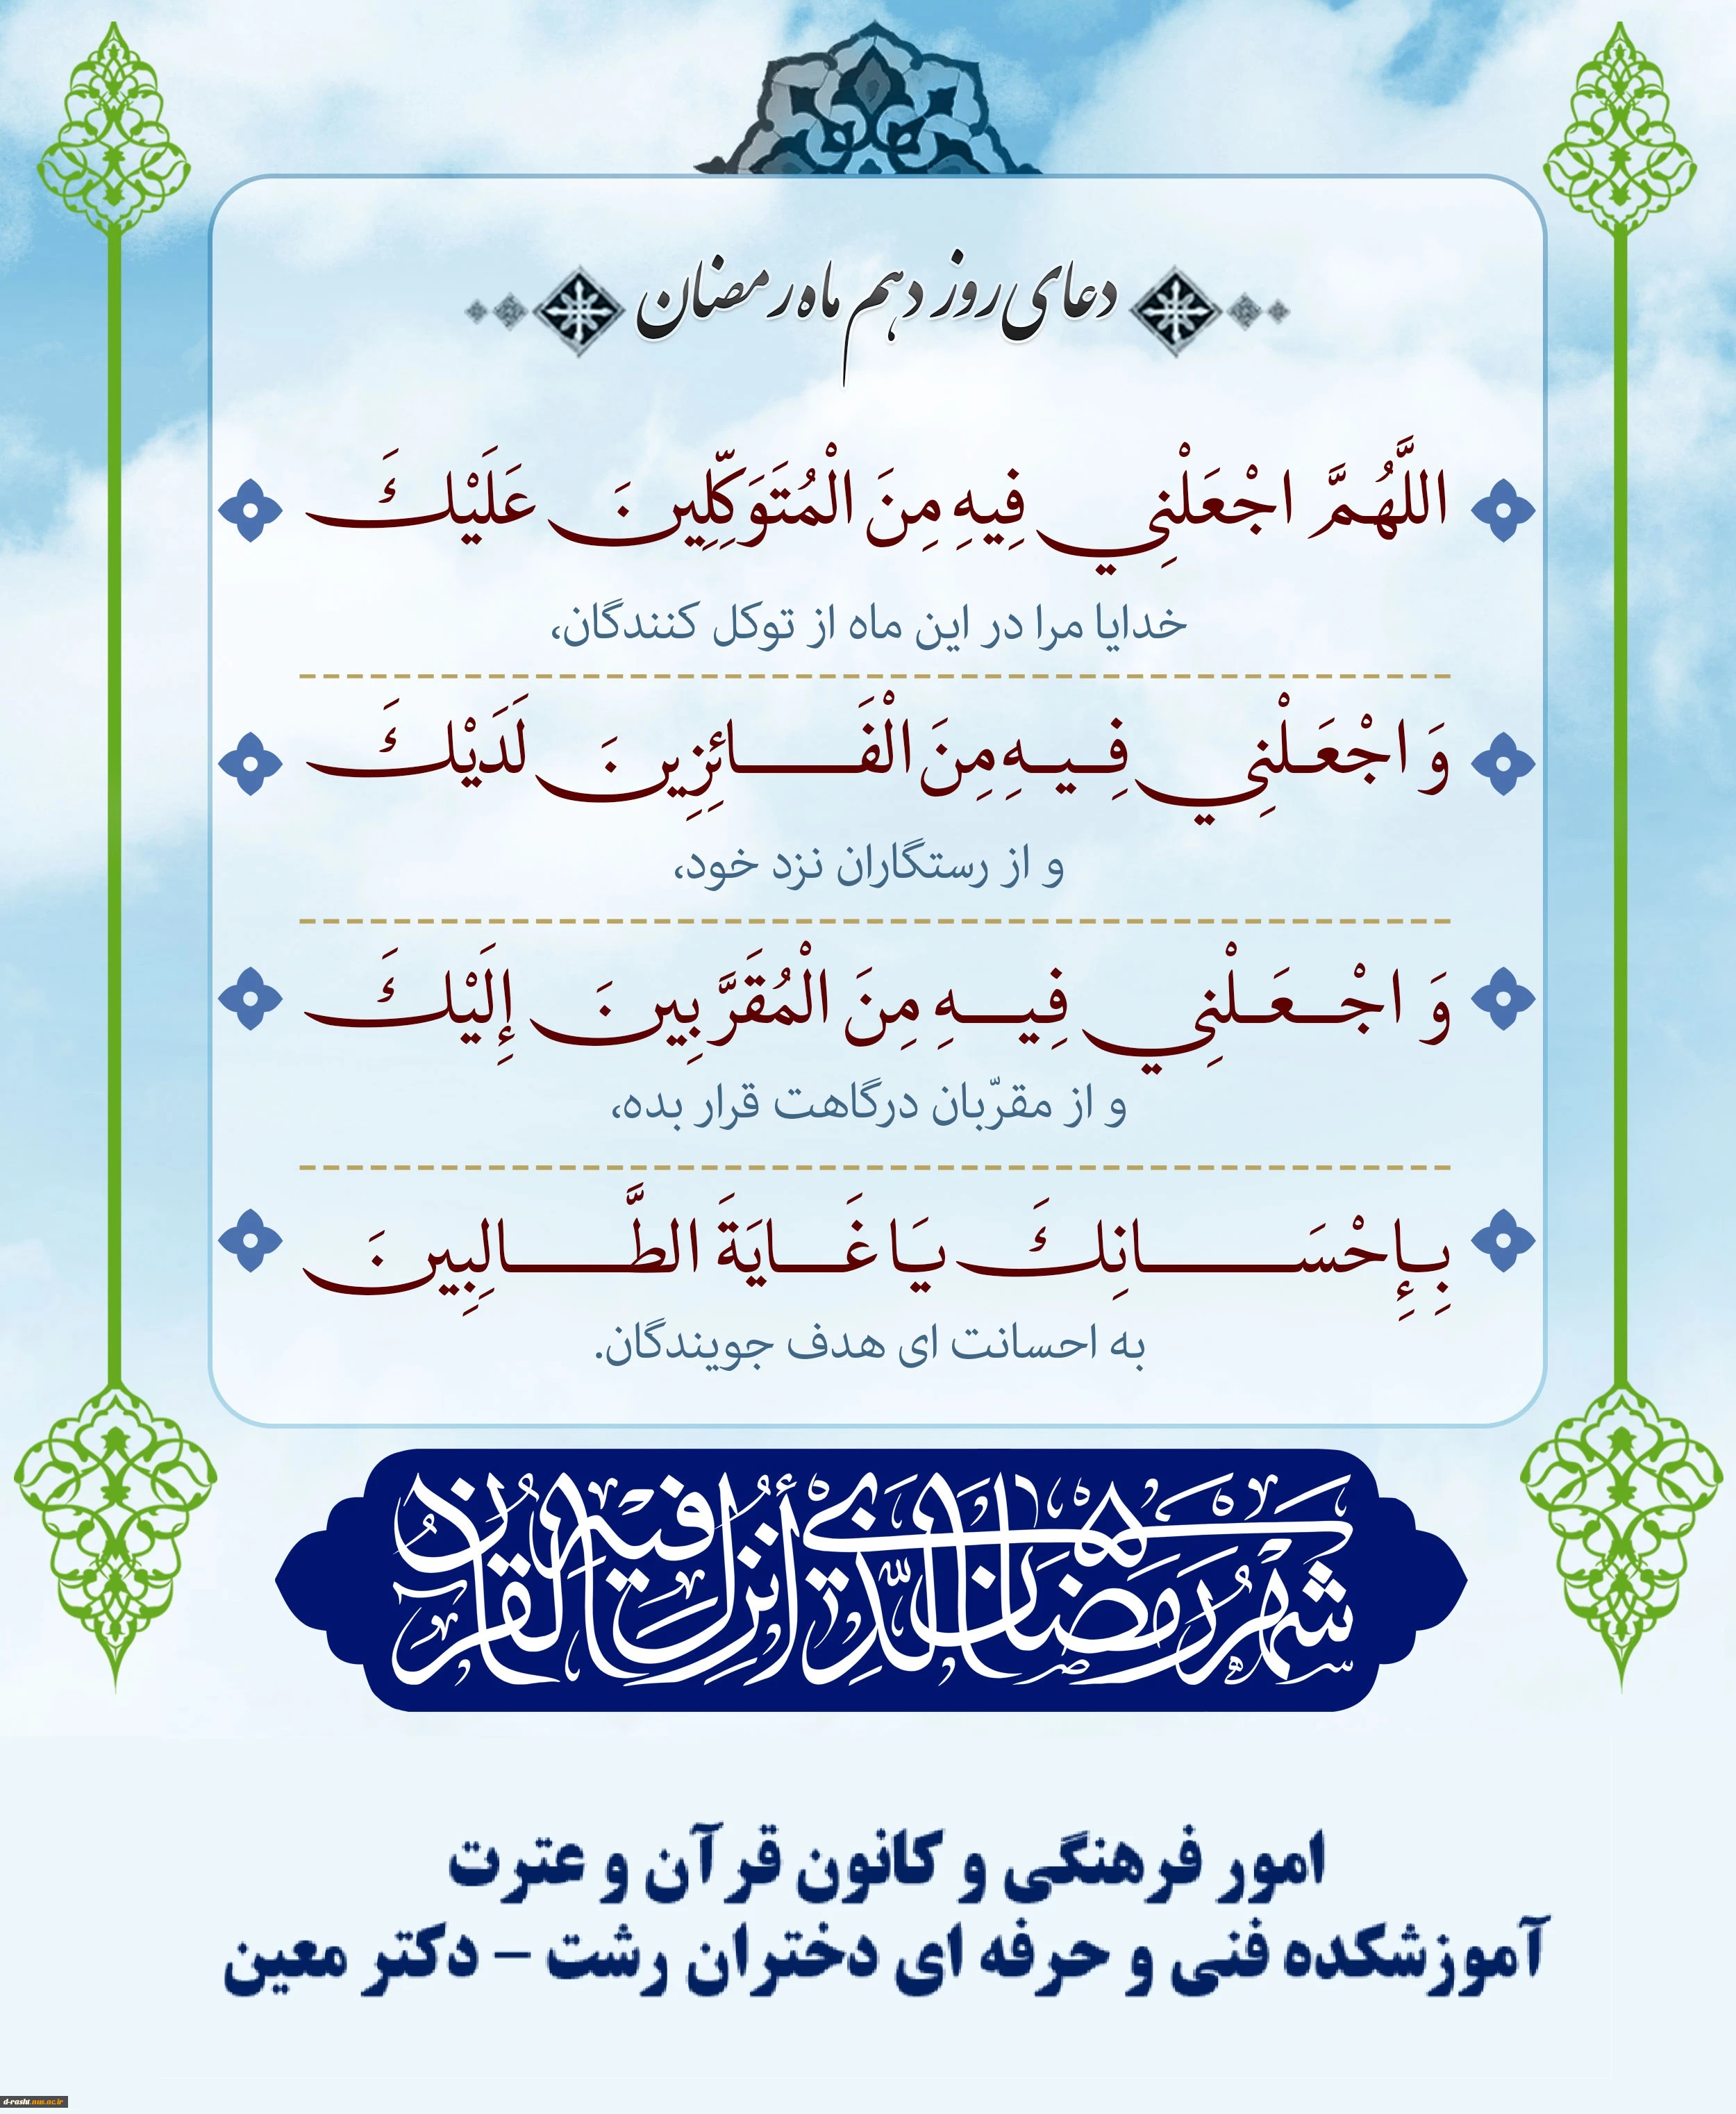 دعای روز دهم ماه رمضان
اللَّهُمَّ اجْعَلْنِي فِيهِ مِنَ الْمُتَوَكِّلِينَ عَلَيْكَ
خدایا مرا در این ماه از توکل کنندگان،
وَ اجْعَلْنِي فِيهِ مِنَ الْفَائِزِينَ لَدَيْكَ
و از رستگاران نزد خود،
وَ اجْعَلْنِي فِيهِ مِنَ الْمُقَرَّبِينَ إِلَيْكَ
و از مقرّبان درگاهت قرار بده،
بِإِحْسَانِكَ يَا غَايَةَ الطَّالِبِينَ
به احسانت ای هدف جویندگان.
شهر رمضان الّذي أُنزل فيه القرآن
امور فرهنگی و کانون قرآن و عترت
آموزشکده فنی و حرفه ای دختران رشت – دکتر معین
d-rasht.nus.ac.ir